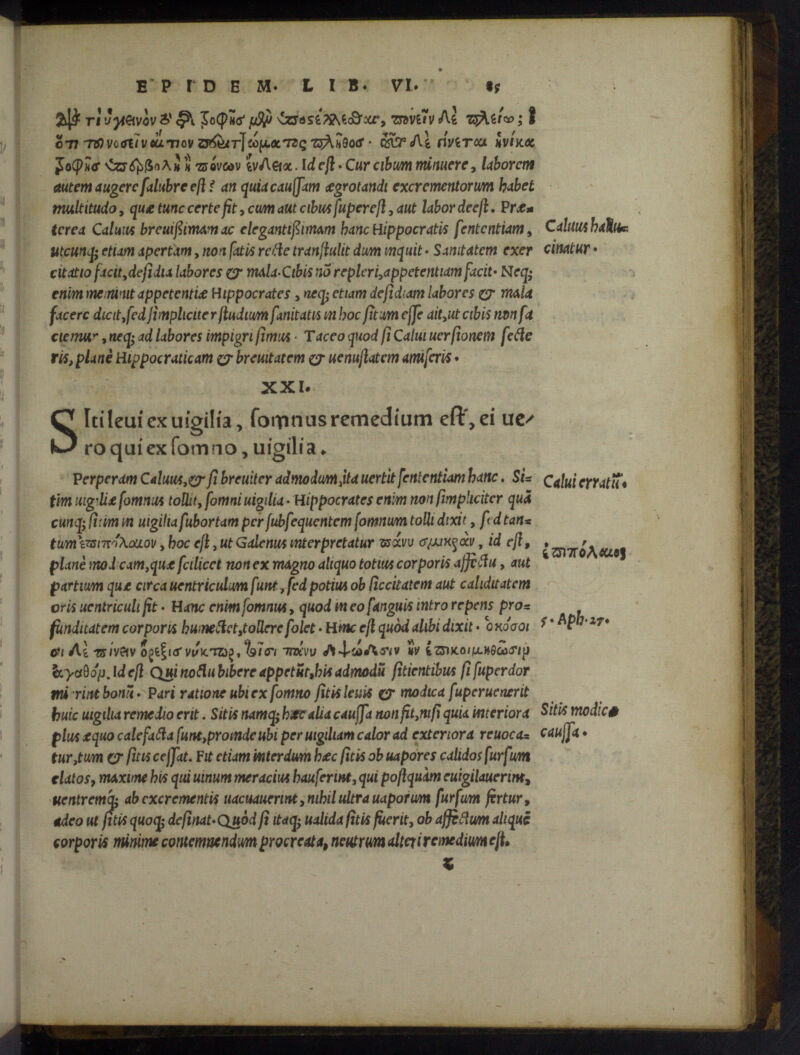 EPIDEM. LIB. VI.
Id est. Cur cibum minuere, laborem
autem augere salubre est? an quia caussam ægrotandi excrementorum habet
multitudo, quæ tunc certe fit, cum aut cibus superest, aut labor deest. Præ=
terea Caluus breuissimam ac elegantissimam hanc Hippocratis sententiam,
Caluus
utcunq; etiam apertam, non satis recte transtulit dum inquit. Sanitatem exer
cinatur.
citatio facit, desidia labores & mala. Cibis nō repleri, appetentiam facit. Neq;
enim meminit appetentiæ Hippocrates, neq; etiam desidiam labores & mala
facere dicit, sed simpliciter studium sanitatis in hoc situm esse ait, ut cibis non sa
ciemur, neq; ad labores impigri simus. Taceo quod si Calui uersionem secte
ris, planè Hippocraticam & breuitatem & uenustatem amiseris.
XXI.
SIti leui ex uigilia, somnus remedium est, ei ue/
ro qui ex somno, uigilia.
Perperam Caluus, & si breuiter admodum, ita uertit sententiam hanc. Si=
Calui erratū.
tim uigiliæ somnus tollit, somni uigilia. Hippocrates enim non simpliciter quā
cunq; sitim in uigilia subortam per subsequentem somnum tolli dixit, sed tan=
tum ἐπιπόλαιον, hoc est, ut Galenus interpretatur πάνυ σμικρὰν, id est,
ἐπιπόλαιος
planè modicam, quæ scilicet non ex magno aliquo totius corporis affectu, aut
partium quæ circa uentriculum sunt, sed potius ob siccitatem aut caliditatem
oris uentriculi fit. Hanc enim somnus, quod in eo sanguis intro repens pro=
funditatem corporis humectet, tollere solet. Hinc est quòd alibi dixit. ὁκόσοι
5. Aph. 27.
Id est Qui noctu bibere appetūt, his admodū sitientibus si superdor
mierint bonū. Pari ratione ubi ex somno sitis leuis & modica superuenerit
huic uigilia remedio erit. Sitis namq; hæc alia caussa non fit, nisi quia interiora
Sitis modicæ
plus æquo calefacta sunt, proinde ubi per uigiliam calor ad exteriora reuoca=
caussa.
tur, tum & sitis cessat. Fit etiam interdum hæc sitis ob uapores calidos sursum
elatos, maxime his qui uinum meracius hauserint, qui postquàm euigilauerint,
uentremq; ab excrementis uacuauerint, nihil ultra uaporum sursum fertur,
adeo ut sitis quoq; desinat. Quòd si itaq; ualida sitis fuerit, ob affectum aliquē
corporis minime contemnendum procreata, neutrum alteri remedium est.